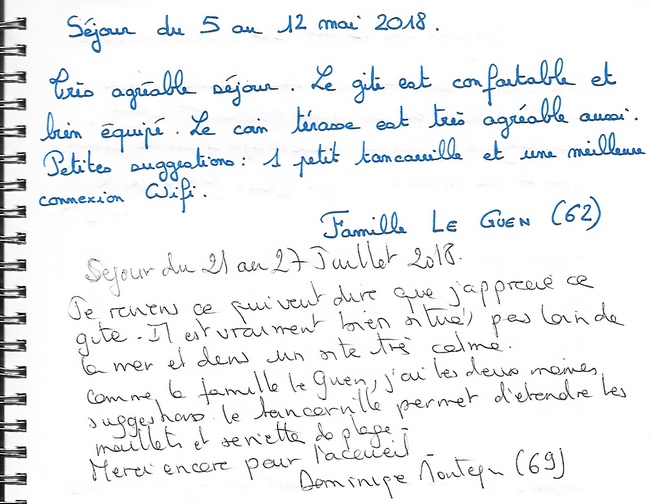 Séjour du 5 au 12 mai 2018.
Très agréable séjour. Le gite est confortable et
bien équipé. Le coin térasse est très agréable aussi.
Petites suggestions : 1 petit tancarville et une meilleure
connexion Wifi.
Famille LE GUEN (62)
Sejour du 21 au 27 Juillet 2018.
Je reviens ce qui veut dire que j'apprecie ce
gite. Il est vraiment bien situé, pas loin de
la mer et dans un site très calme.
comme la famille le Guen, j'ai les deux memes
suggestions le tancarville permet d'etendre les
maillots et serviette de plage.
Merci encore pour l'accueil
Dominique (69)